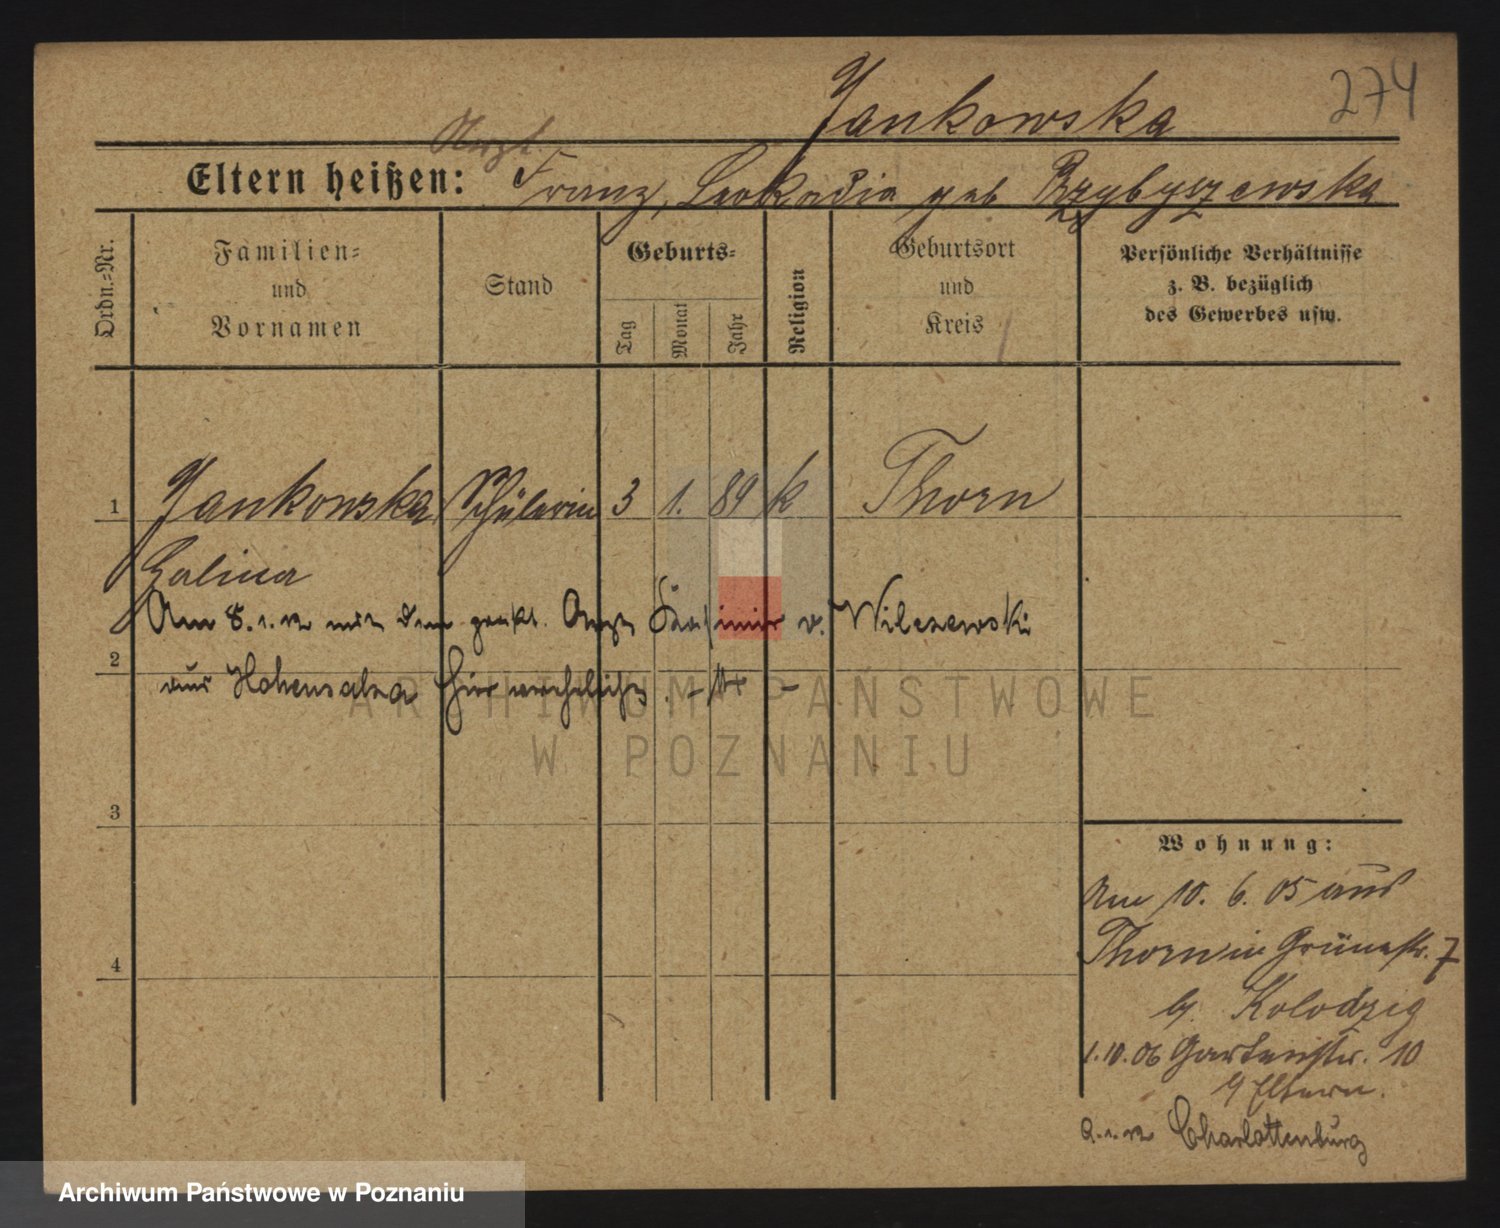 Jankowska
274
Arzt
Eltern heißen: Franz, Leokadia geb Przybyszewska
Ordn.-Nr.
Familien- und Vornamen
Stand
Geburts-
Tag
Monat
Jahr
Religion
Geburtsort und Kreis
Persönliche Verhältnisse
z. B. bezüglich
des Gewerbes usw.
1 Jankowska Schülerin 3 1. 89 k Thorn
Halina
Am 8.1.12 mit dem prakt. Arzt Kasimir v. Wilczewski
2
aus Hohensalza hier verehelicht.
3
4
Wohnung:
Am 10. 6. 05 aus
Thorn in Grünestr. 7
b. Kolodzig
1.10.06 Gartenstr. 10
b Eltern.
9.1.12 Charlottenburg
ARCHIWUM PAŃSTWOWE
W POZNANIU
Archiwum Państwowe w Poznaniu